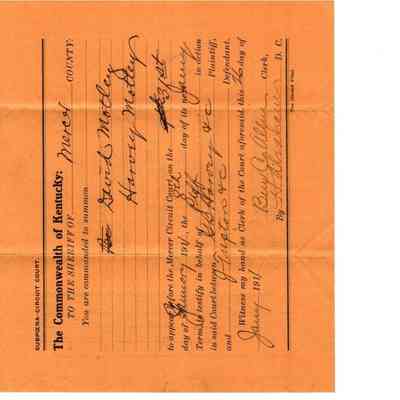 SUBPŒNA-CIRCUIT COURT.
The Commonwealth of Kentucky:
TO THE SHERIFF OF Mercer COUNTY:
You are commanded to summon
David Motley
Harvey Motley
to appear before the Mercer Circuit Court on the 31st
day of January 191 , the 8th day of its Jany
Term, to testify in behalf of Plff in action
in said Court between Harvey &c Plaintiff,
and J Tupton &c Defendant.
Witness my hand as Clerk of the Court aforesaid, this day of
Jany 191/ Ben C Allin Clerk,
By D. C.